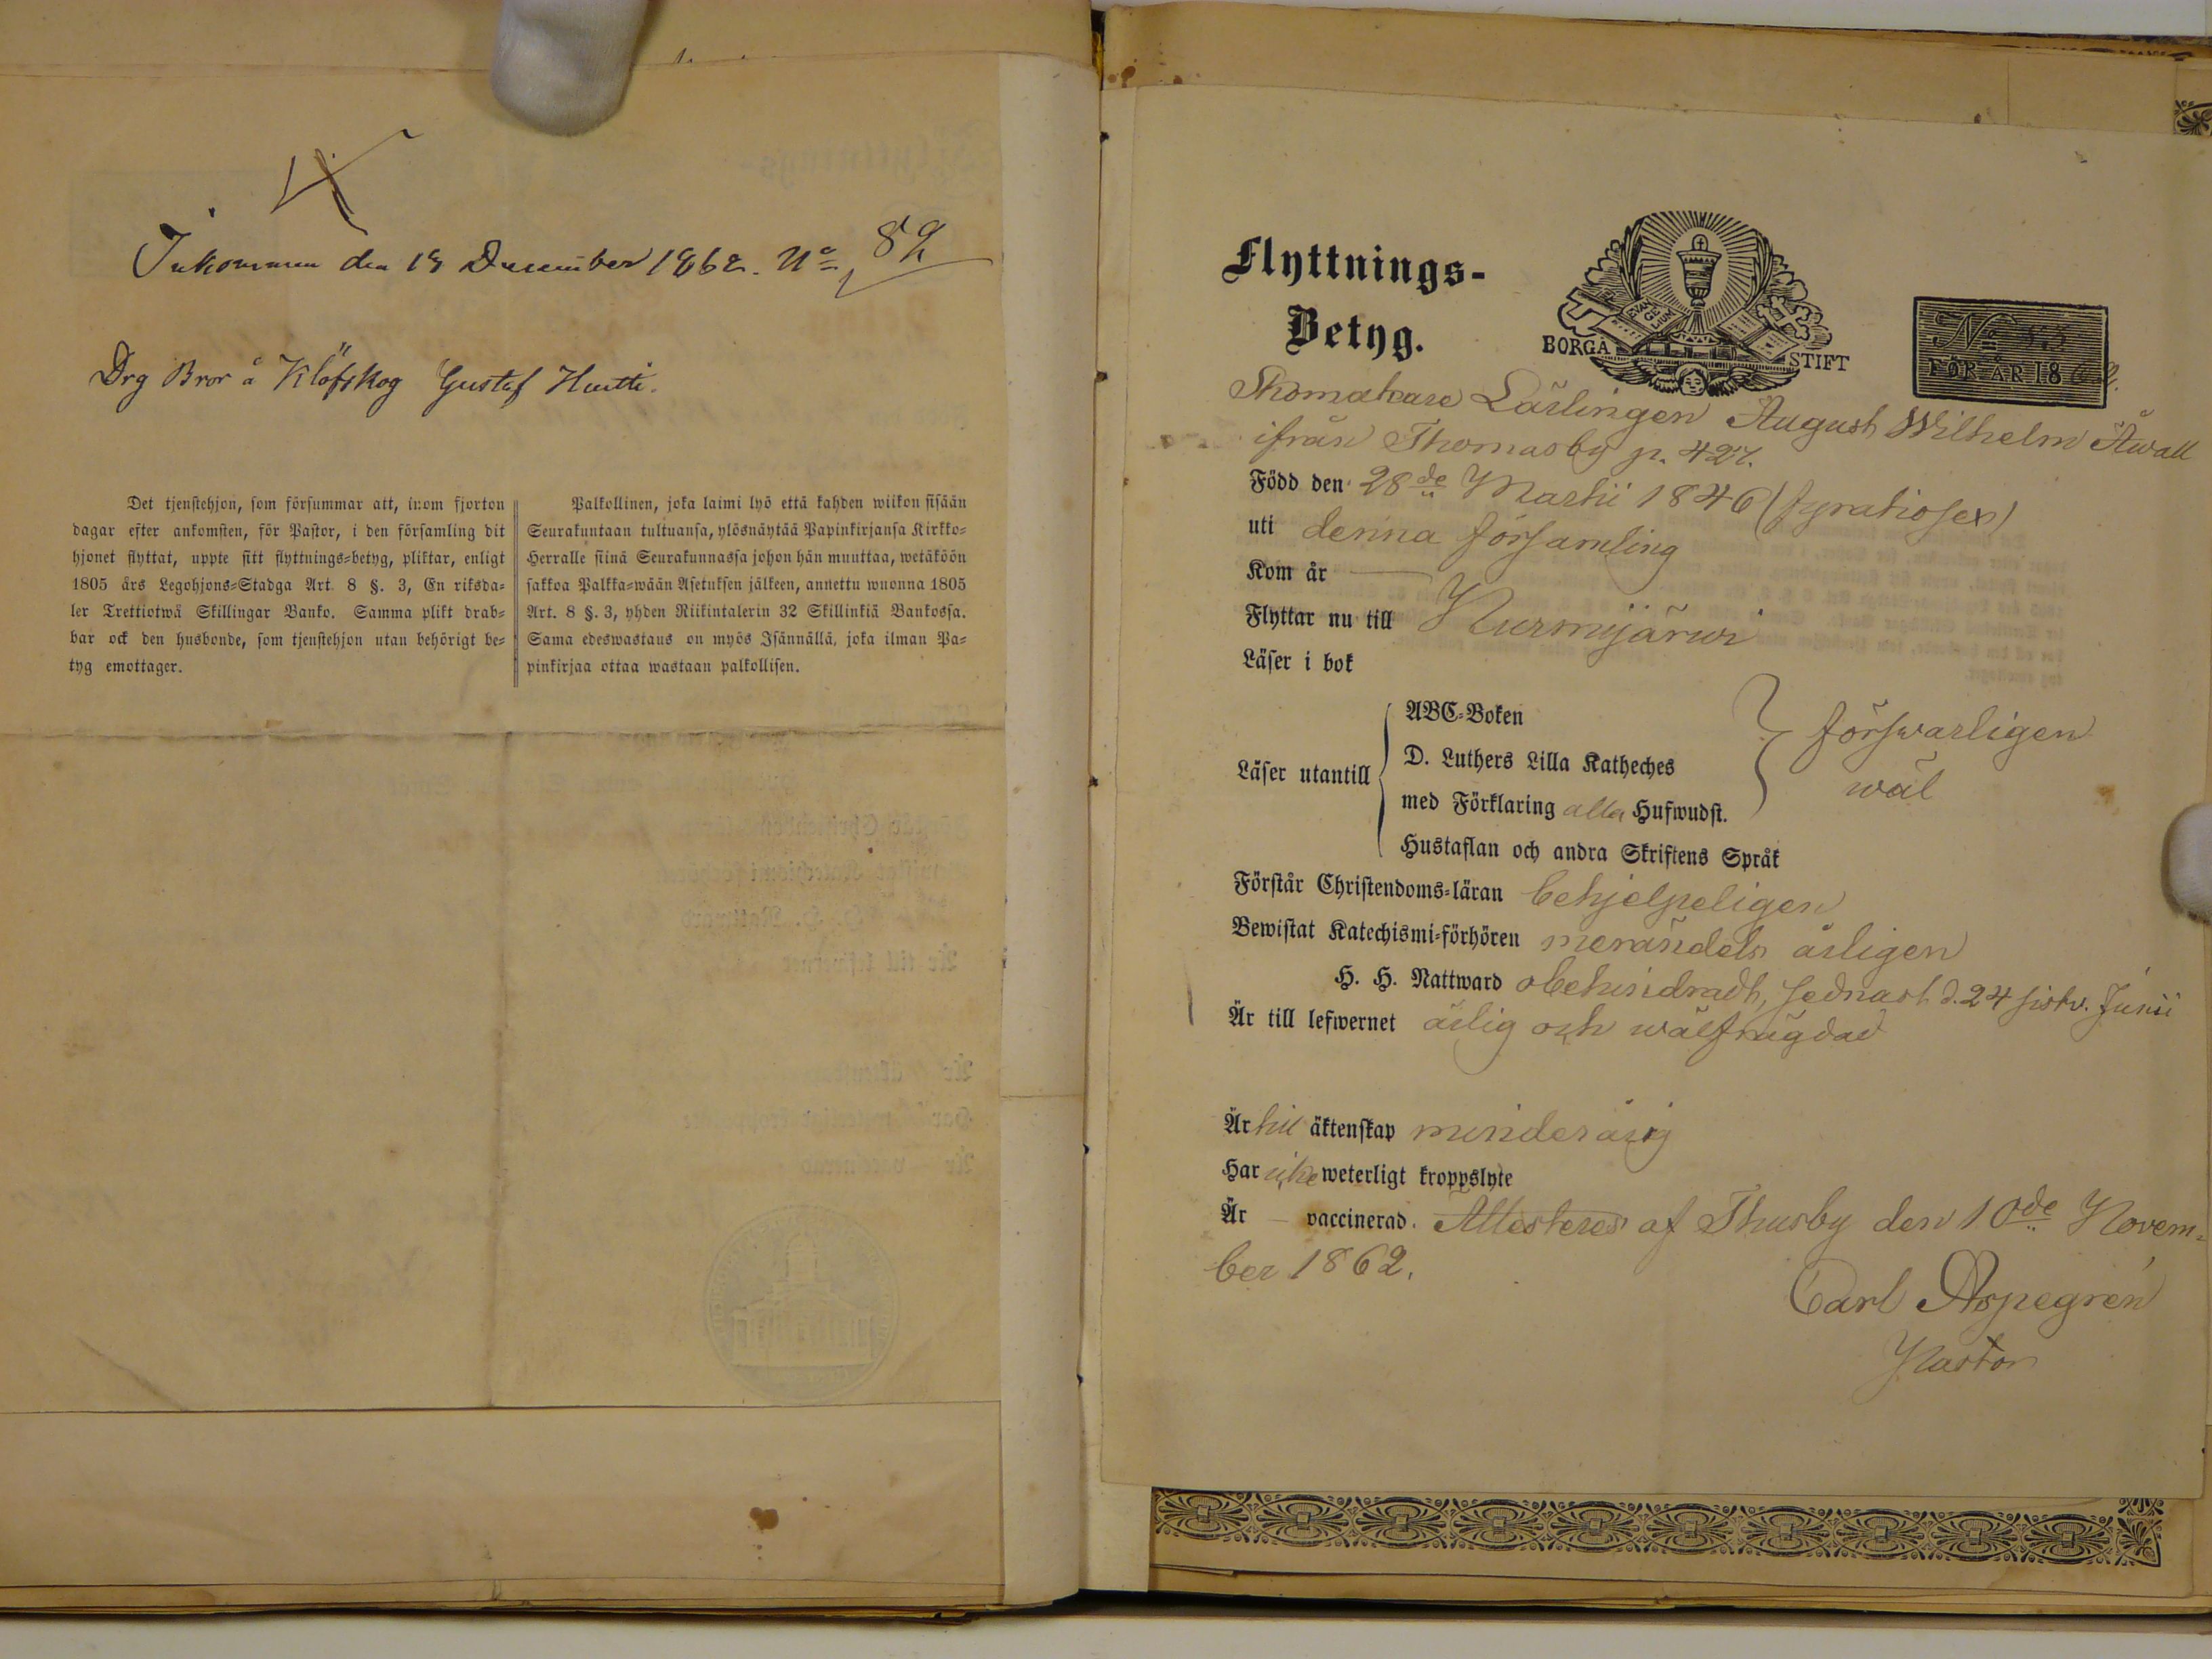 Inkommen den 19 December 1862. No 82
Drg Bror å Klöfskog Gustaf Hutti.
Det tjenstehjon, som försummar att, inom fjorton
dagar efter ankomsten, för Pastor, i den församling dit
hjonet flyttat, uppte sitt flyttnings=betyg, pliktar, enligt
1805 års Legohjons=Stadga Art. 8 §. 3, En riksda=
ler Trettiotwå Skillingar Banko. Samma plikt drab=
bar ock den husbonde, som tjenstehjon utan behörigt be=
tyg emottager.
Palkollinen, joka laimi lyö että kahden wiikon sisään
Seurakuntaan tultuansa, ylösnäytää Papinkirjansa Kirkko=
Herralle siinä Seurakunnassa johon hän muuttaa, wetäköön
sakkoa Palkka=wään Asetuksen jälkeen, annettu wuonna 1805
Art. 8 §. 3, yhden Riikintalerin 32 Skillinkiä Bankossa.
Sama edeswastaus on myös Isännällä, joka ilman Pa=
pinkirjaa ottaa wastaan palkollisen.
Flyttnings-
Betyg.
EVAN
GE
LIUM
BORGÅ STIFT
No 53
FÖR ÅR 1862.
Skomakare Lärlingen August Wilhelm Åwall
ifrån Thomasby p. 427.
Född den 28de Martii 1846 (fyratiosex)
uti denna församling
Kom år —
Flyttar nu till Nurmijärwi
Läser i bok
Läser utantill
ABC=Boken
D. Luthers Lilla Katheches
med Förklaring alla Hufwudst.
Hustaflan och andra Skriftens Språk
försvarligen
wäl
Förstår Christendoms=läran behjelpeligen
Bewistat Katechismi=förhören merändels årligen
H. H. Nattward obehindradt, sednast d. 24 sistv. Junii
Är till lefwernet ärlig och wälfrägdad
Är till äktenskap minderårig
Har icke weterligt kroppslyte
Är — vaccinerad. Attesteres af Thusby den 10de Novem=
ber 1862.
Carl Aspegrén
Pastor